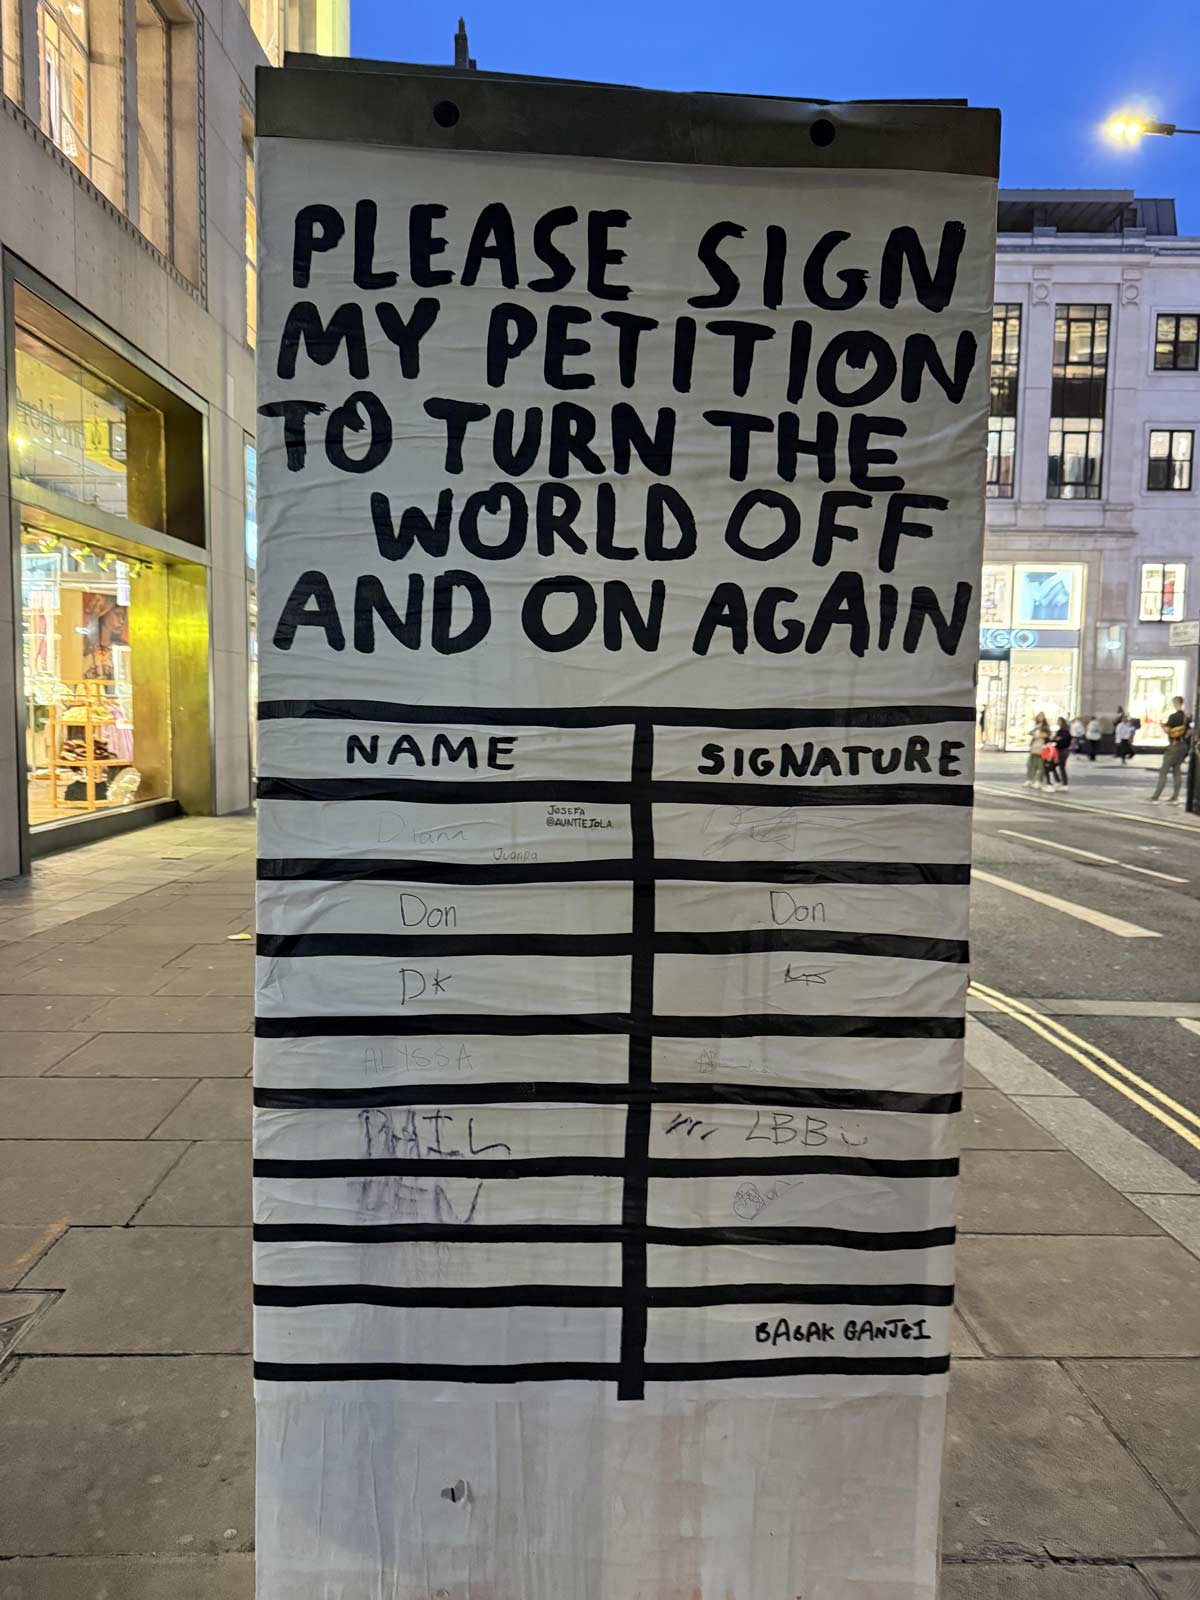 PLEASE SIGN
MY PETITION
TO TURN THE
WORLD OFF
AND ON AGAIN
NAME SIGNATURE
Diana
JOSEFA
@AUNTIEJOLA
Juanpa
Don Don
DK
ALYSSA
LBB
BABAK GANJEI